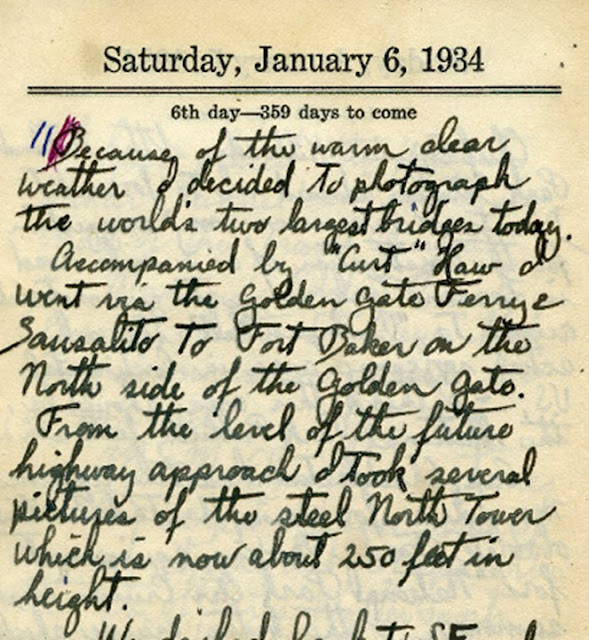 Saturday, January 6, 1934
6th day—359 days to come
"Because of the warm clear
weather I decided to photograph
the world's two largest bridges today.
Accompanied by "Curt" Haw I
went via the Golden Gate Ferry &
Sausalito to Fort Baker on the
North side of the Golden Gate.
From the level of the future
highway approach I took several
pictures of the steel North Tower
which is now about 250 feet in
height.
We dashed back to SF and